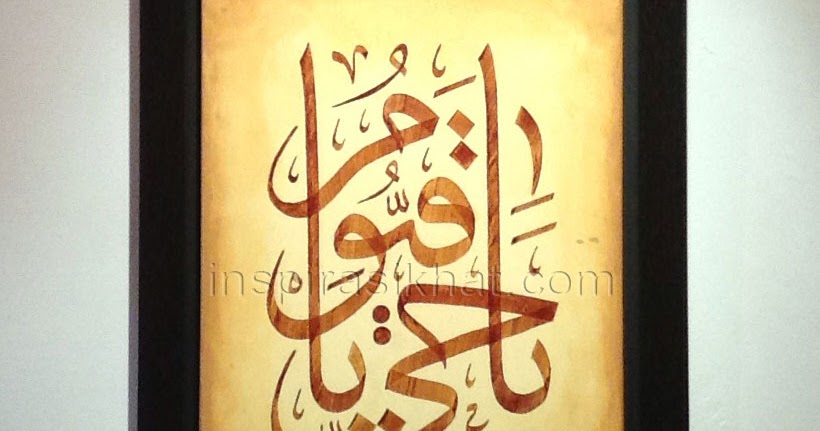 يا حي يا قيوم
inspirasikhat.com